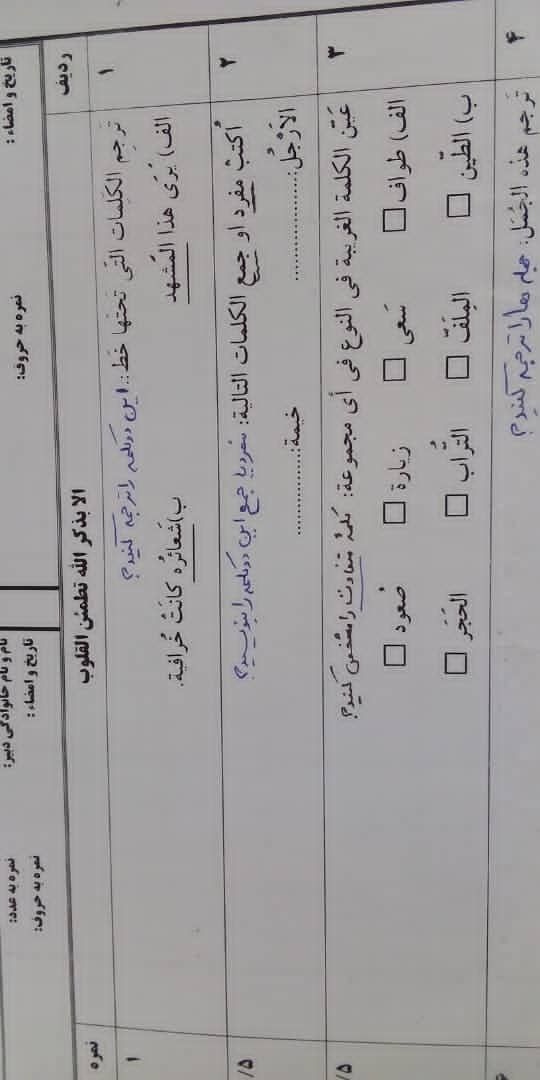 نمره به عدد:
نمره به حروف:
نام و نام خانوادگی دبیر:
تاریخ و امضاء:
نمره به حروف:
تاریخ و امضاء:
ردیف
الا بذکر الله تطمئن القلوب
نمره
۱
تَرجِم الکَلِمات التی تحتها خَطّ: این دو کلمه را ترجمه کنید؟
۱
الف) یُرَی هذا المَشهَد
ب) شَعائرُه کانَتْ خُرافیة.
۲
اُکتبْ مفرد او جمع الکلمات التالیة: مفرد یا جمع این دو کلمه را بنویسید؟
/۵
الاَرْجُل:..................
خیمة:..................
۳
عَیِّن الکلمة الغریبة فی النوع فی أی مجموعة: کلمهٔ متفاوت را مشخص کنید؟
/۵
الف) طواف □ سَعی □ زیارة □ صُعود □
ب) الطّین □ المِلَفّ □ التُّراب □ الحَجَر □
۴
تَرجم هذه الجُمَل: جمله ها را ترجمه کنید؟